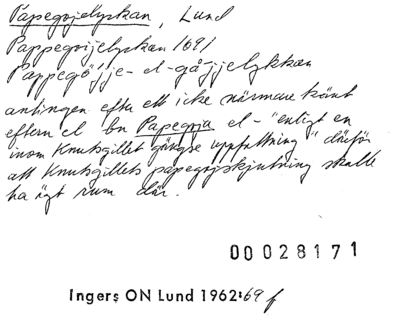 Papegojelyckan, Lund
Pappegoijelyckan 1691
Pappegöjje- el -gåjjelykkan
antingen efter ett icke närmare känt
eftern el bn Papegoja el - "enligt en
inom Knutsgillet gängse uppfattning" därför
att Knutsgillets papegojskjutning skulle
ha ägt rum där.
00028171
Ingers ON Lund 1962:69 f